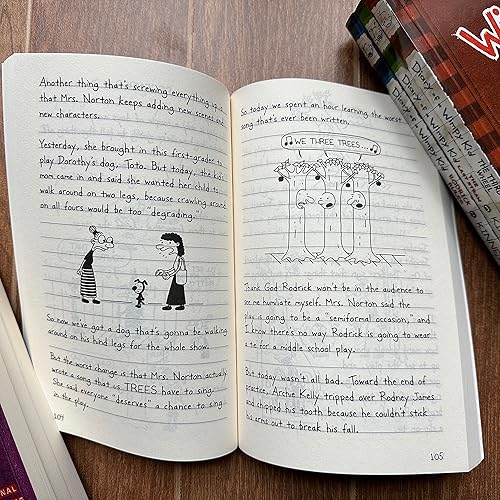 Another thing that's screwing everything up is
that Mrs. Norton keeps adding new scenes and
new characters.
Yesterday, she brought in this first-grader to
play Dorothy's dog, Toto. But today, the kid's
mom came in and said she wanted her child to
walk around on two legs, because crawling around
on all fours would be too "degrading."
So now we've got a dog that's gonna be walking
around on his hind legs for the whole show.
But the worst change is that Mrs. Norton actually
wrote a song that us TREES have to sing.
She said everyone "deserves" a chance to sing
in the play.
104
So today we spent an hour learning the worst
song that's ever been written.
WE THREE TREES...
Thank God Rodrick won't be in the audience to
see me humiliate myself. Mrs. Norton said the
play is going to be a "semiformal occasion," and
I know there's no way Rodrick is going to wear
a tie for a middle school play.
But today wasn't all bad. Toward the end of
practice, Archie Kelly tripped over Rodney James
and chipped his tooth because he couldn't stick
his arms out to break his fall.
105
Diary of a Wimpy Kid
Diary of a Wimpy Kid
Diary of a Wimpy Kid
RODRICK